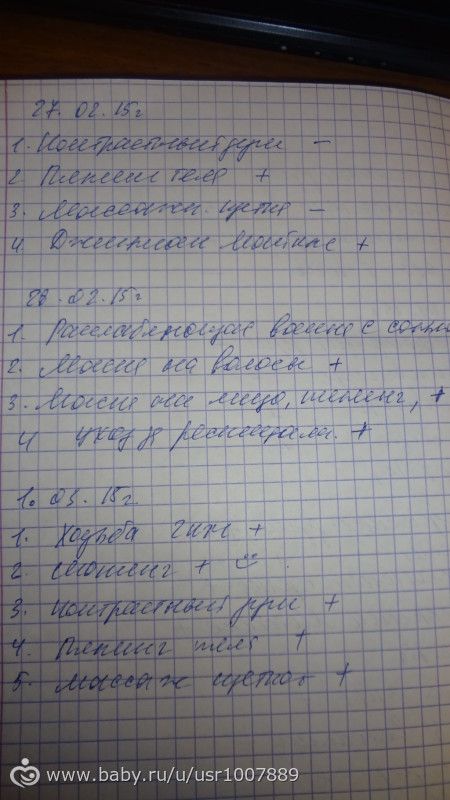 27.02.15г
1. Контрастный душ –
2. Пилинг тела +
3. Массаж щетк –
4. Джинтонам +
28.02.15г
1. Расслабляющая ванна с солью
2. Маска на волосы +
3. Маска на лицо, пилинг, +
4 уход за ресницами. +
1.03.15г
1. Ходьба 2 км +
2. шопинг + 
3. контрастный душ +
4. Пилинг тела +
5. массаж щеткой +
www.baby.ru/u/usr1007889